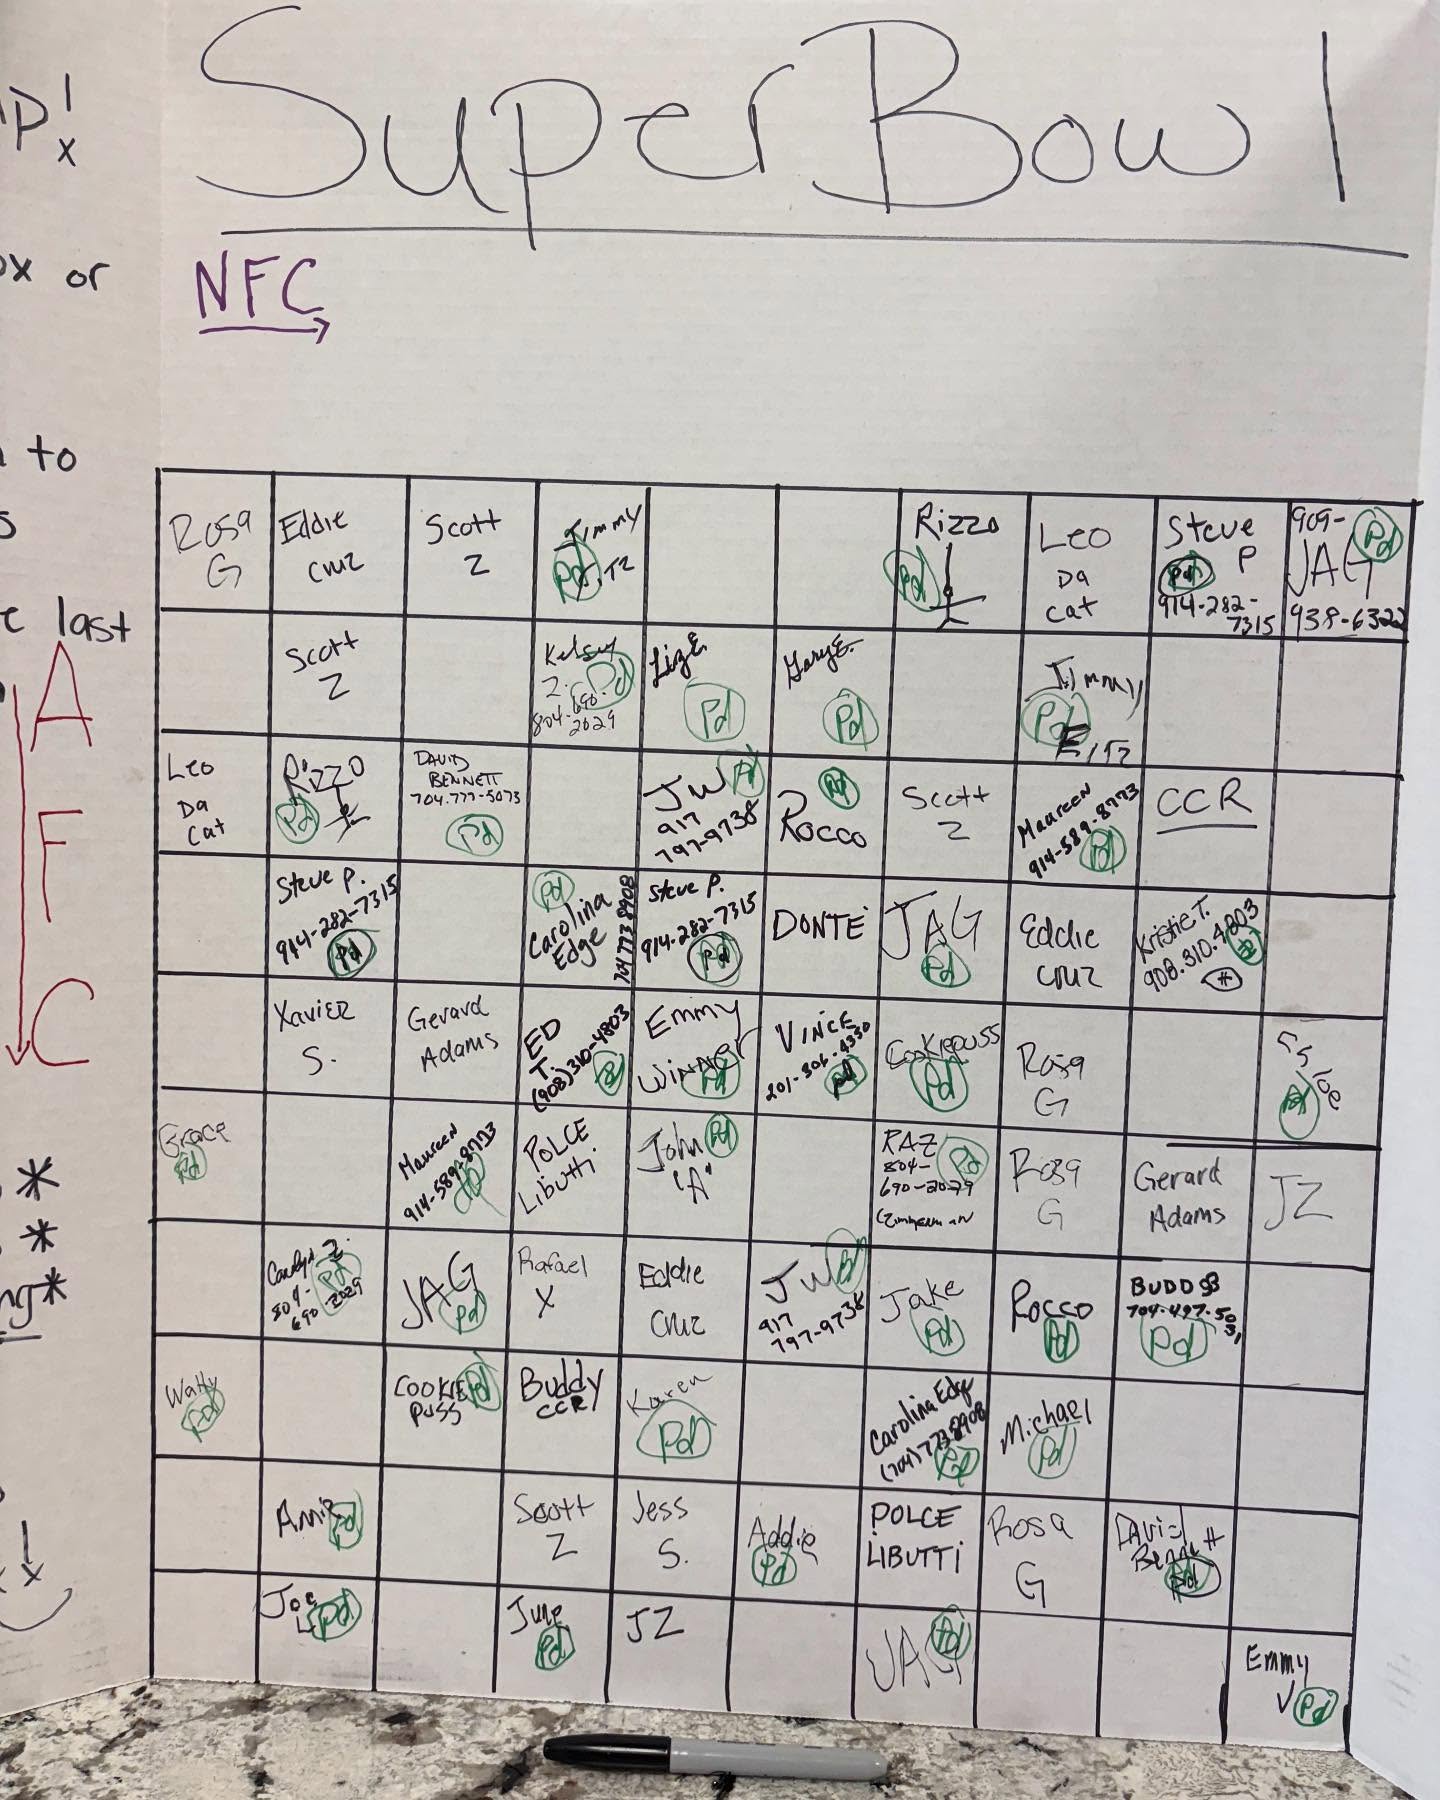 Super Bowl
NFC
x
or
to
last
AFC
Rosa G
Eddie Cruz
Scott Z
Jimmy
Pd
Rizzo
Pd
Leo Da Cat
Steve P
Pd
914-282-7315
909-
JAG
Pd
938-6322
Scott Z
Kelsey Z.
Pd
804-690-2029
Liz E.
Pd
Gary E.
Pd
Jimmy
Pd
Leo Da Cat
Rizzo
Pd
DAVID BENNETT
704.777-5073
Pd
JW
Pd
917
797-9738
Rocco
Pd
Scott Z
Maureen
914-589-8773
Pd
CCR
Steve P.
914-282-7315
Pd
Pd
Carolina Edge
704 773 8908
Steve P.
914-282-7315
Pd
DONTE
JAG
Pd
Eddie Cruz
Kristie T.
908.310.4803
Xavier S.
Gerard Adams
ED T.
(908)310-4803
Emmy Winner
Pd
VINCE
201-306-4330
Pd
Cookiepuss
Pd
Rosa G
Pd
Grace
Pd
Maureen
914-589-8773
POLCE Libutti
John "A"
Pd
RAZ
804-690-2029
Pd
Zimmerman
Rosa G
Gerard Adams
JZ
Carolyn Z.
804-690-2029
Pd
JAG
Pd
Rafael X
Eddie Cruz
JW
917
797-9738
Jake
Pd
Rocco
Pd
BUDDY
704-497-503
Pd
Wally
Pd
COOKIE PUSS
Pd
Buddy CCR
Karen
Pd
Carolina Edge
(704)773 8908
Pd
Michael
Pd
Annie
Pd
Scott Z
Jess S.
Addie
Pd
POLCE LIBUTTI
Rosa G
David Bennett
Pd
Joe
Pd
June
Pd
JZ
JAG
Pd
Emmy V
Pd